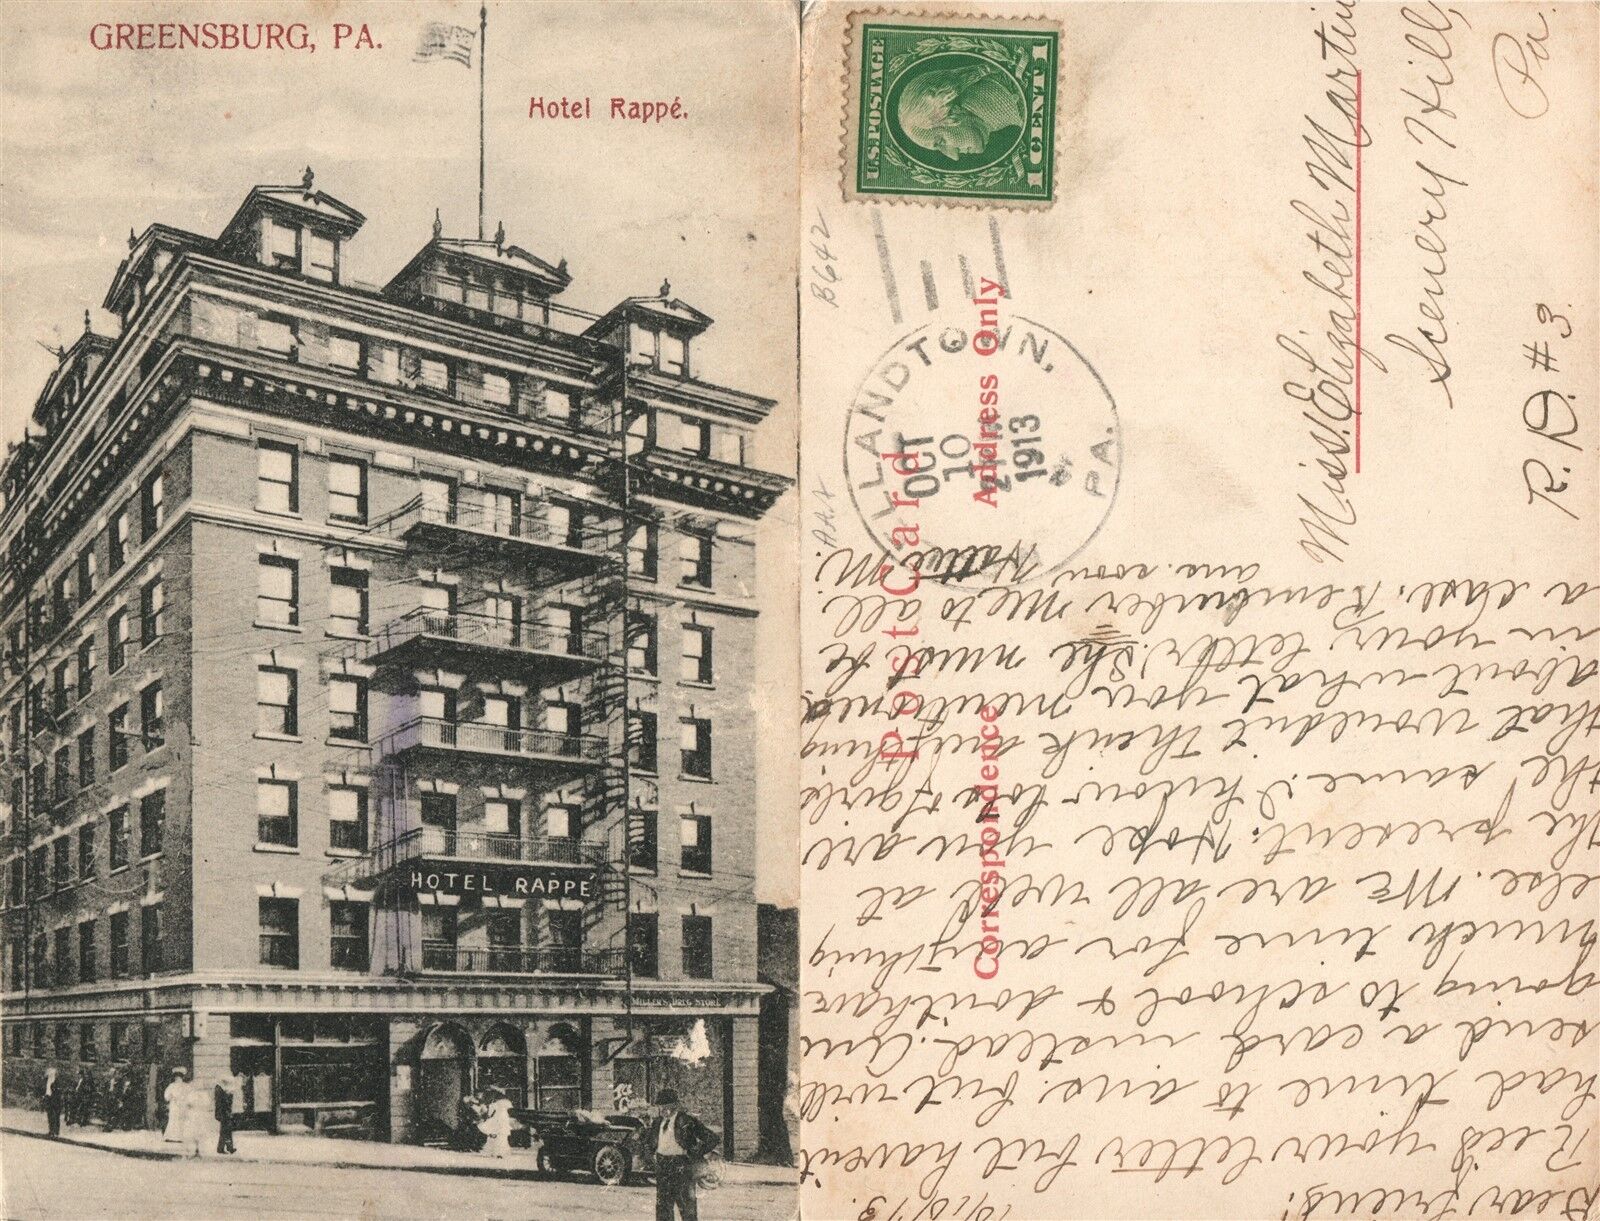 GREENSBURG, PA.
Hotel Rappé.
HOTEL RAPPÉ
MILLER'S DRUG STORE
U.S. POSTAGE
1 CENT 1
LLANDTOWN,
OCT
10
1913
PA.
B642
AAA
Post Card
Correspondence
Address Only
Miss Elizabeth Martin
Scenery Hill,
Pa.
R.D. #3.
10/10/13.
Dear Friend:
Rec'd your letter but havent
had time to ans. but will
send a card instead. Am
going to school & don't have
much time for anything
else. We are all well at
the present. Hope you are
the same. I know lots of girls
that wouldn't think anything
about what you mentioned
in your letter. She must be
a case. Remember me to all
ans. soon Hattie M.